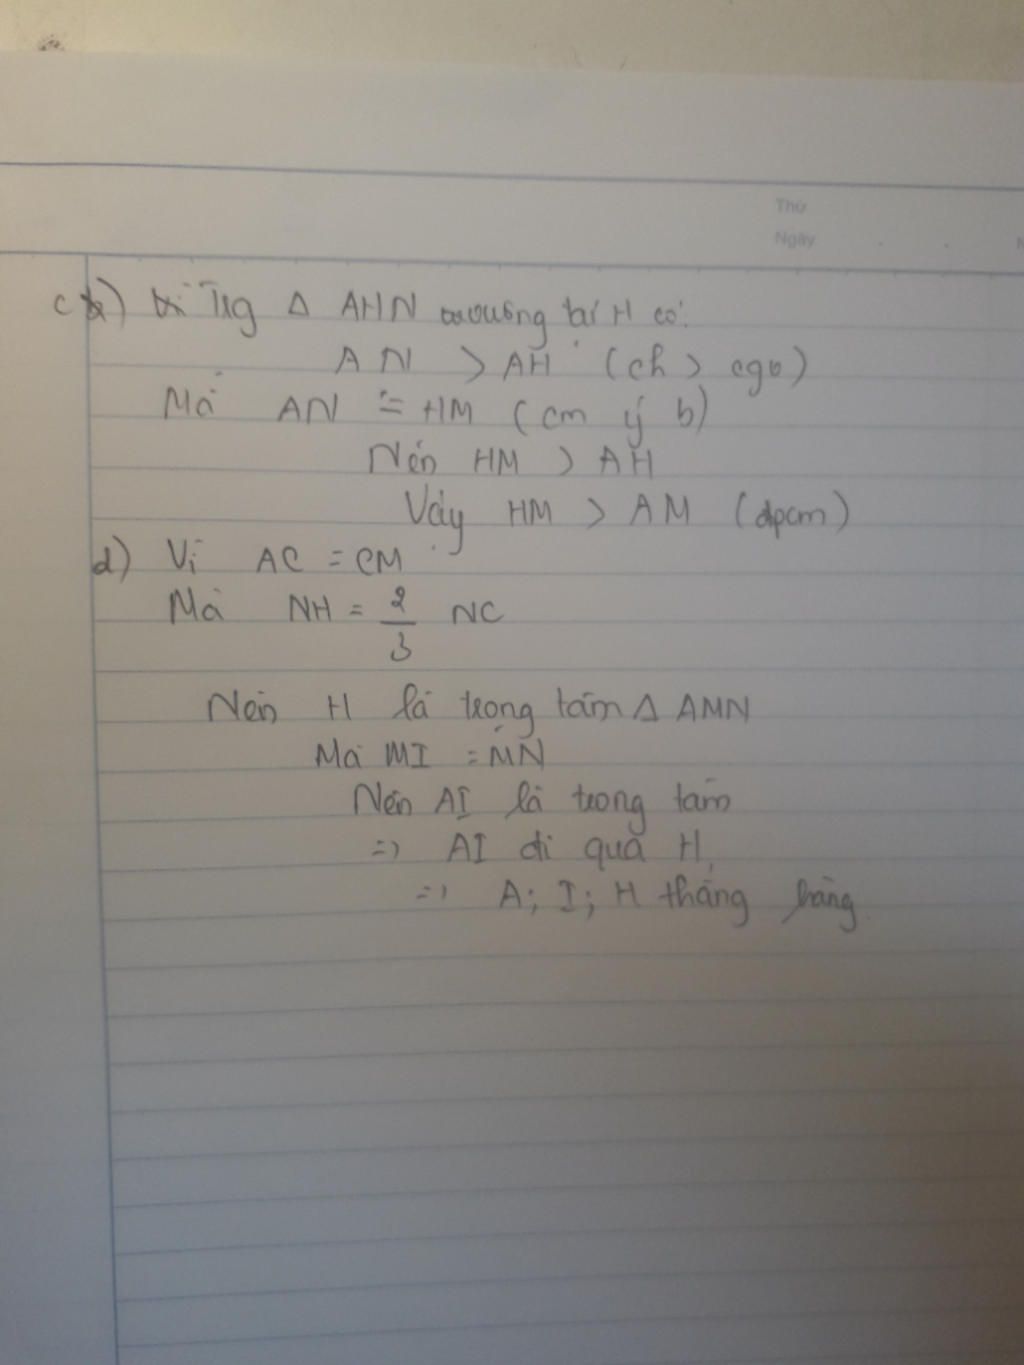 Thứ
Ngày
c) Trg Δ AHN vuông tại H có:
AN > AH (ch > cgv)
Mà AN = HM (cm ý b)
Nên HM > AH
Vậy HM > AM (đpcm)
d) Vì AC = CM
Mà NH = 2/3 NC
Nên H là trọng tâm Δ AMN
Mà MI = MN
Nên AI là trong tâm
=> AI đi qua H
=> A; I; H thẳng hàng